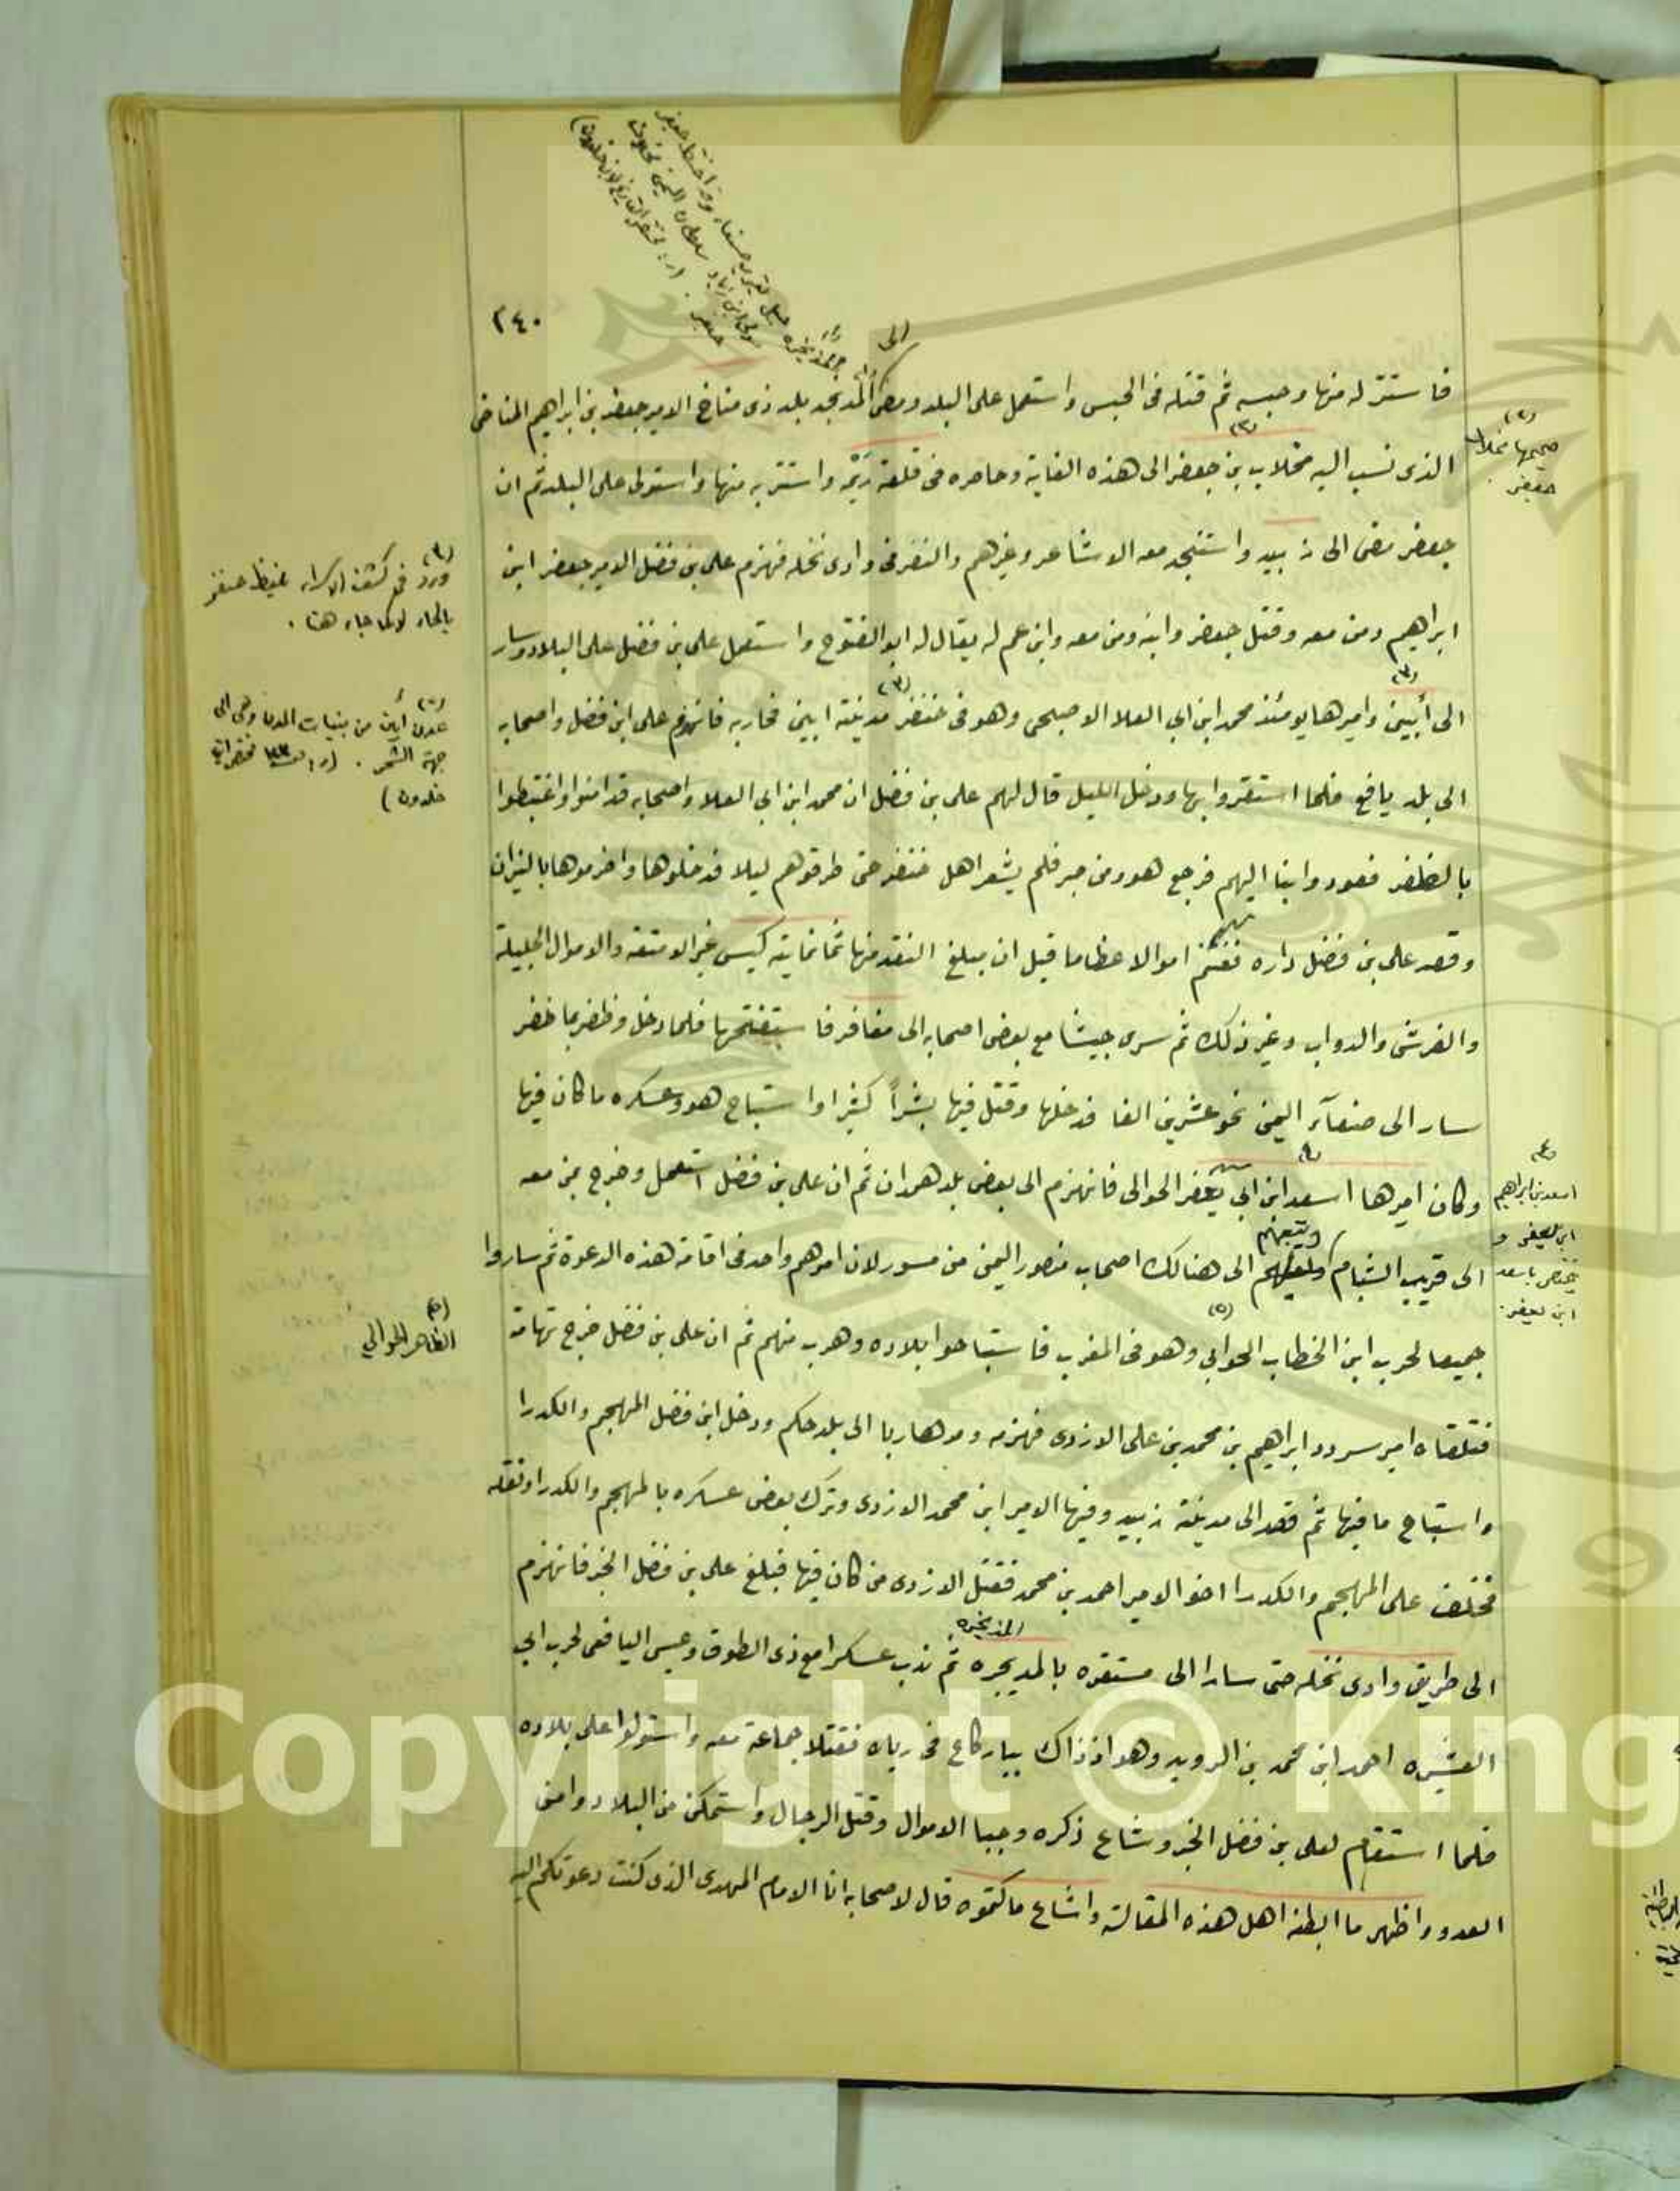 ٢٤٠
الى
فاستنزله منها وحبسه ثم قتله فى الحبس واستعمل على البلد ومضى المديجره بلد ذى مناخ الامير جعفر بن ابراهيم المناخى
الذى نسب اليه مخلاب بن جعفر الى هذه الغاية وحاصره فى قلعة ريمه واستتر به منها واستولى على البلد ثم ان
جعفر مضى الى زبيد واستنجد معه الاشاعر وغيرهم والتقى فى وادى نخله فهزم على بن فضل الامير جعفر ابن
ابراهيم ومن معه وقتل جعفر وابنه ومن معه وابن عم له يقال له ابو الفتوح واستعمل على بن فضل على البلاد وسار
الى أبين واميرها يومئذ محمد ابن ابي العلا الاصبحى وهو فى خنفر مدينة ابين فحاربه فانهزم على ابن فضل واصحابه
الى بلد يافع فلما استقروا بها ودخل الليل قال لهم على بن فضل ان محمد ابن ابى العلا واصحابه قد امنوا واغتبطوا
بالظفر فعودوا بنا اليهم فرجع هو ومن فلم يشعر اهل خنفر حتى طرقوهم ليلا فدخلوها واضرموها بالنيران
وقصد على بن فضل داره فغنم اموالا عظاما قيل ان مبلغ النقد منها ثمانماية كيس غير الامتعه والاموال الجليلة
والفرش والدواب وغير ذلك ثم سرى جيشا مع بعض اصحابه الى مغافر فاستفتحها فلما دخل وظفر بما ظفر
سار الى صنعآء اليمن نحو عشرين الفا فدخلها وقتل فيها بشراً كثيرا واستباح هو وعسكره ما كان فيها
وكان اميرها اسعد ابن ابي يعفر الحوالى فانهزم الى بعض بلد همدان ثم ان على بن فضل استعمل وخرج بمن معه
ويتبعهم
الى قريب الشبام الى هنالك اصحاب منصور اليمن من مسور لان امرهم واحد فى اقامة هذه الدعوة ثم ساروا
جميعا لحرب ابن الخطاب الحوابي وهو فى المغرب فاستباحوا بلاده وهرب منهم ثم ان على بن فضل خرج تهامة
فتلقاه امير سردد ابراهيم بن محمد بن على الازدى فهزمه ومر هاربا الى بلد حكم ودخل ابن فضل المهجم والكدرا
واستباح ما فيها ثم قصد الى مدينة زبيد وفيها الامير ابن محمد الازدى وترك بعض عسكره بالمهجم والكدرا وثقله
فخلف على المهجم والكدرا اخو الامير احمد بن محمد فقتل الازدى من كان فيها فبلغ على بن فضل الخبر فانهزم
المذيخره
الى طريق وادى نخله حتى سارا الى مستقره بالمديجره ثم ندب عسكرا مع ذى الطوق وعيسى اليافعى لحرب ابي
العشيره احمد ابن محمد بن الرويد وهو اذ ذاك فى فقتلا جماعة معه واستولوا على بلاده
فلما استقام لعلى بن فضل الخبر وشاع ذكره وجبا الاموال وقتل الرجال واستمكن من البلاد وامن
العدو واظهر ما ابطنه اهل هذه المقالة واشاع ما كتموه قال لاصحابه انا الامام المهدى الذى كنت دعوتكم اليه
(٢)
صحيحها مخلاف
جعفر
(٣)
ورد فى كشف الاسرار
بالحاء لا كما جاء هنا .
عدن أبين من بنيات المدن وهى الى
جهة الشحر .
خلدون)
(٤)
اسعد بن ابراهيم
ابن يعفر و
يختص باسعد
ابن يعفر .
(٥)
الظاهر الحوالي
Copyright © King
19